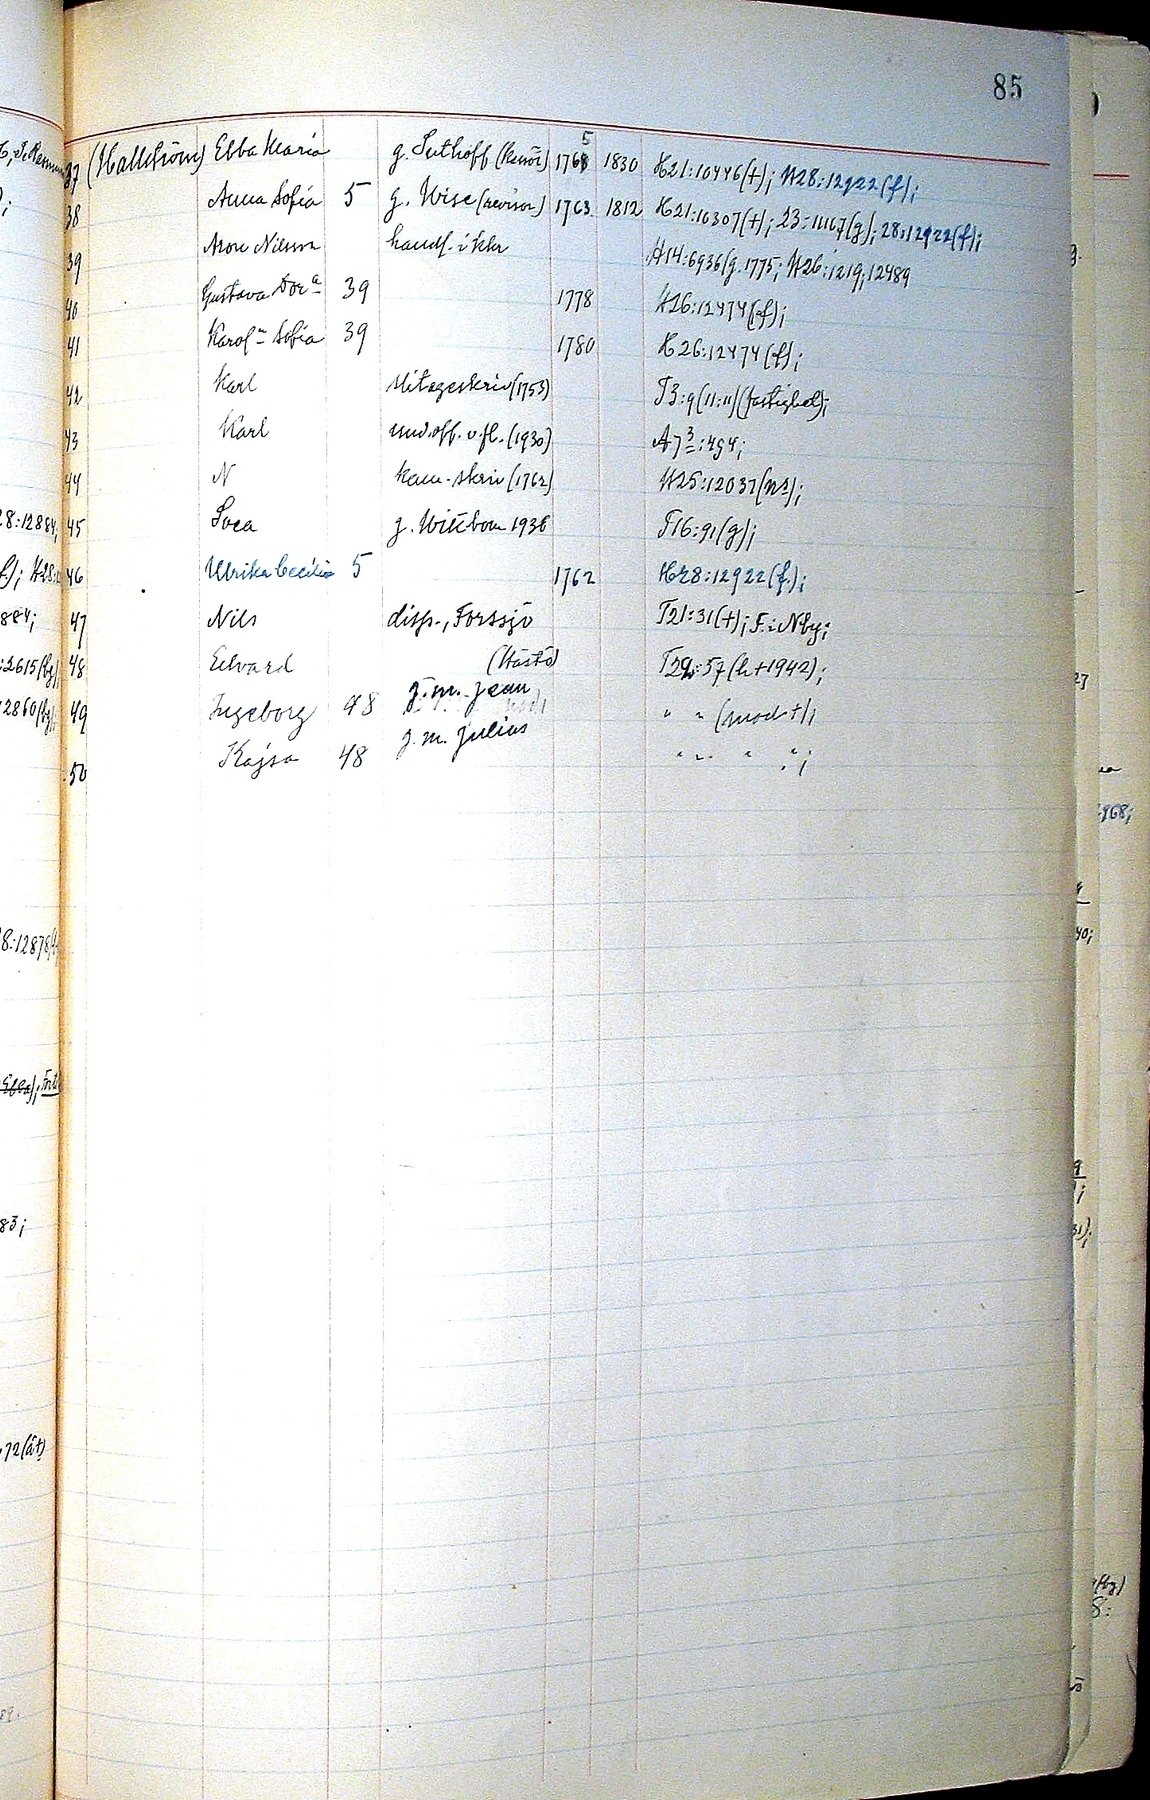 85
37 (Hallström) Ebba Maria g. Suthoff (kmör) 1765 1830 H21:10446(+); H28:12922(f);
38 Anna Sofia 5 g. Wise (revisor) 1763 1812 H21:10307(+); 23:11167(g); 28:12922(f);
39 Aron Nilsson handl. i Khr H14:6936(g. 1775; H26:1219; 12489
40 Gustava Dorª 39 1778 H26:12474(f);
41 Karolª Sofia 39 1780 H26:12474(f);
42 Karl (1753) T3:9(11:11)(fastighet);
43 Karl und.off. v. fl. (1930) A7³:494;
44 N kam.skriv (1762) H25:12037(ns);
45 Svea g. Wittbom 1936 T16:91(g);
46 Ulrika Cecilia 5 1762 H28:12922(f.);
47 Nils disp., Forssjö T21:31(+); F.i Nby;
48 Edvard (Hästö) T29:57(h+1942);
49 Ingeborg 48 g.m. Jean " " (mod+);
50 Kajsa 48 g.m. Julius " " " ";
28:12884;
884;
:2615(bg)
2860(bg);
8:12878
83;
72(åt)
968;
40;